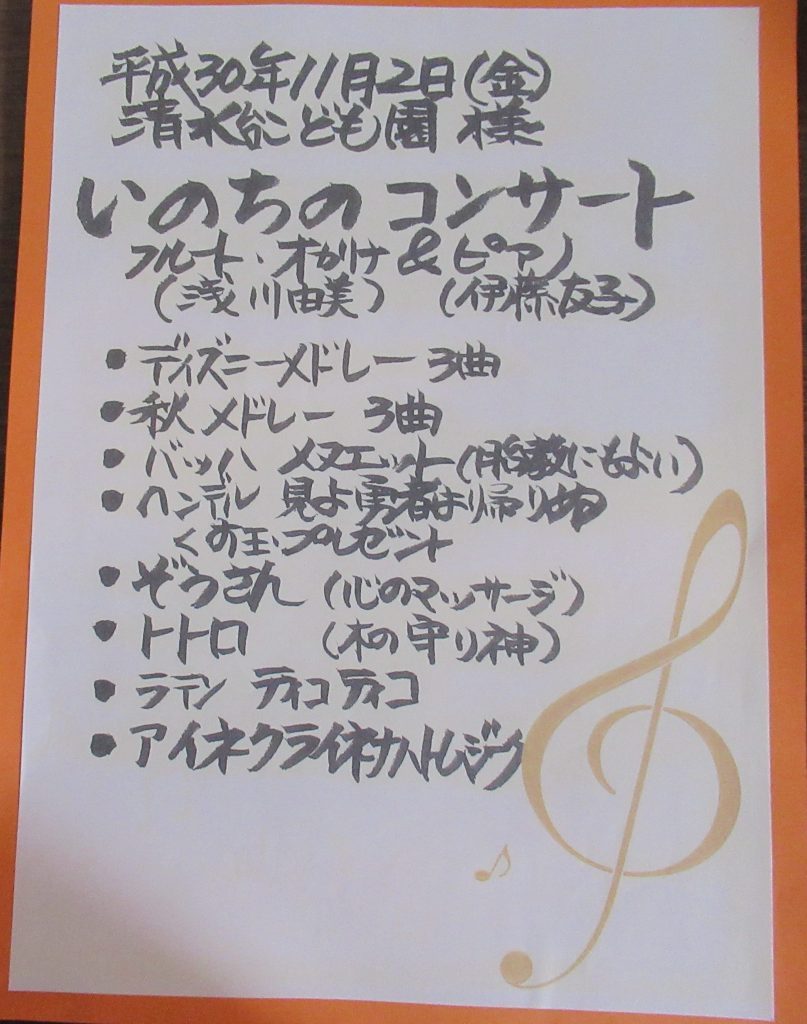 平成30年11月2日(金)
清水台こども園 様
いのちのコンサート
フルート・オカリナ & ピアノ
(浅川由美) (伊藤友子)
• ディズニーメドレー 3曲
• 秋メドレー 3曲
• バッハ メヌエット(胎教にもよい)
• ヘンデル 見よ勇者は帰りぬ
くす玉・プレゼント
• ぞうさん (心のマッサージ)
• トトロ (木の守り神)
• ラテン ティコティコ
• アイネクライネナハトムジーク